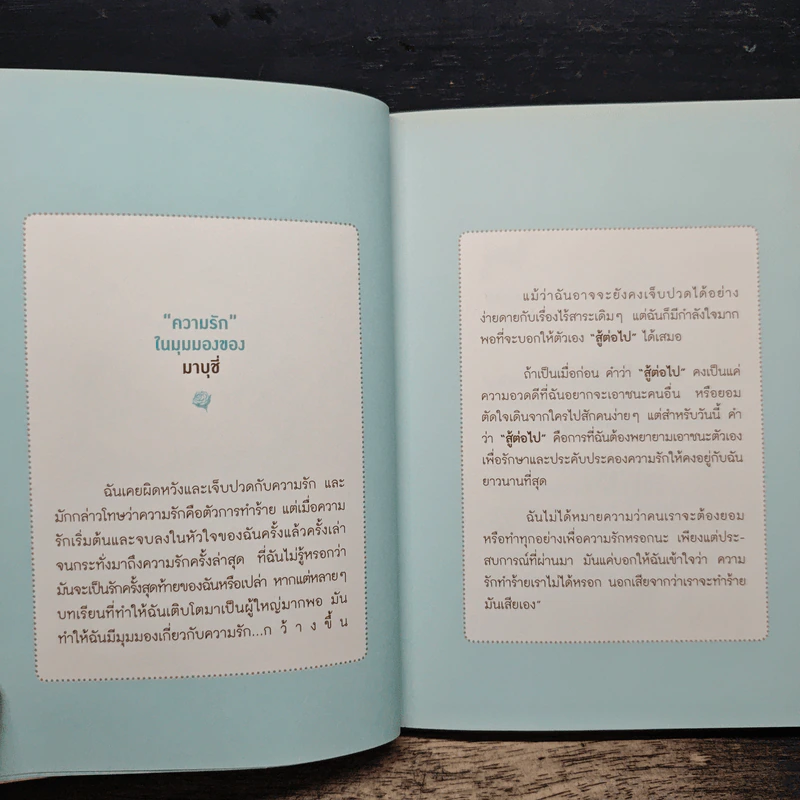 "ความรัก"
ในมุมมองของ
มาบุชี่
ฉันเคยผิดหวังและเจ็บปวดกับความรัก และ
มักกล่าวโทษว่าความรักคือตัวการทำร้าย แต่เมื่อความ
รักเริ่มต้นและจบลงในหัวใจของฉันครั้งแล้วครั้งเล่า
จนกระทั่งมาถึงความรักครั้งล่าสุด ที่ฉันไม่รู้หรอกว่า
มันจะเป็นรักครั้งสุดท้ายของฉันหรือเปล่า หากแต่หลายๆ
บทเรียนที่ทำให้ฉันเติบโตมาเป็นผู้ใหญ่มากพอ มัน
ทำให้ฉันมีมุมมองเกี่ยวกับความรัก...ก ว้ า ง ขึ้ น
แม้ว่าฉันอาจจะยังคงเจ็บปวดได้อย่าง
ง่ายดายกับเรื่องไร้สาระเดิมๆ แต่ฉันก็มีกำลังใจมาก
พอที่จะบอกให้ตัวเอง "สู้ต่อไป" ได้เสมอ
ถ้าเป็นเมื่อก่อน คำว่า "สู้ต่อไป" คงเป็นแค่
ความอวดดีที่ฉันอยากจะเอาชนะคนอื่น หรือยอม
ตัดใจเดินจากใครไปสักคนง่ายๆ แต่สำหรับวันนี้ คำ
ว่า "สู้ต่อไป" คือการที่ฉันต้องพยายามเอาชนะตัวเอง
เพื่อรักษาและประคับประคองความรักให้คงอยู่กับฉัน
ยาวนานที่สุด
ฉันไม่ได้หมายความว่าคนเราจะต้องยอม
หรือทำทุกอย่างเพื่อความรักหรอกนะ เพียงแต่ประ-
สบการณ์ที่ผ่านมา มันแค่บอกให้ฉันเข้าใจว่า ความ
รักทำร้ายเราไม่ได้หรอก นอกเสียจากว่าเราจะทำร้าย
มันเสียเอง"